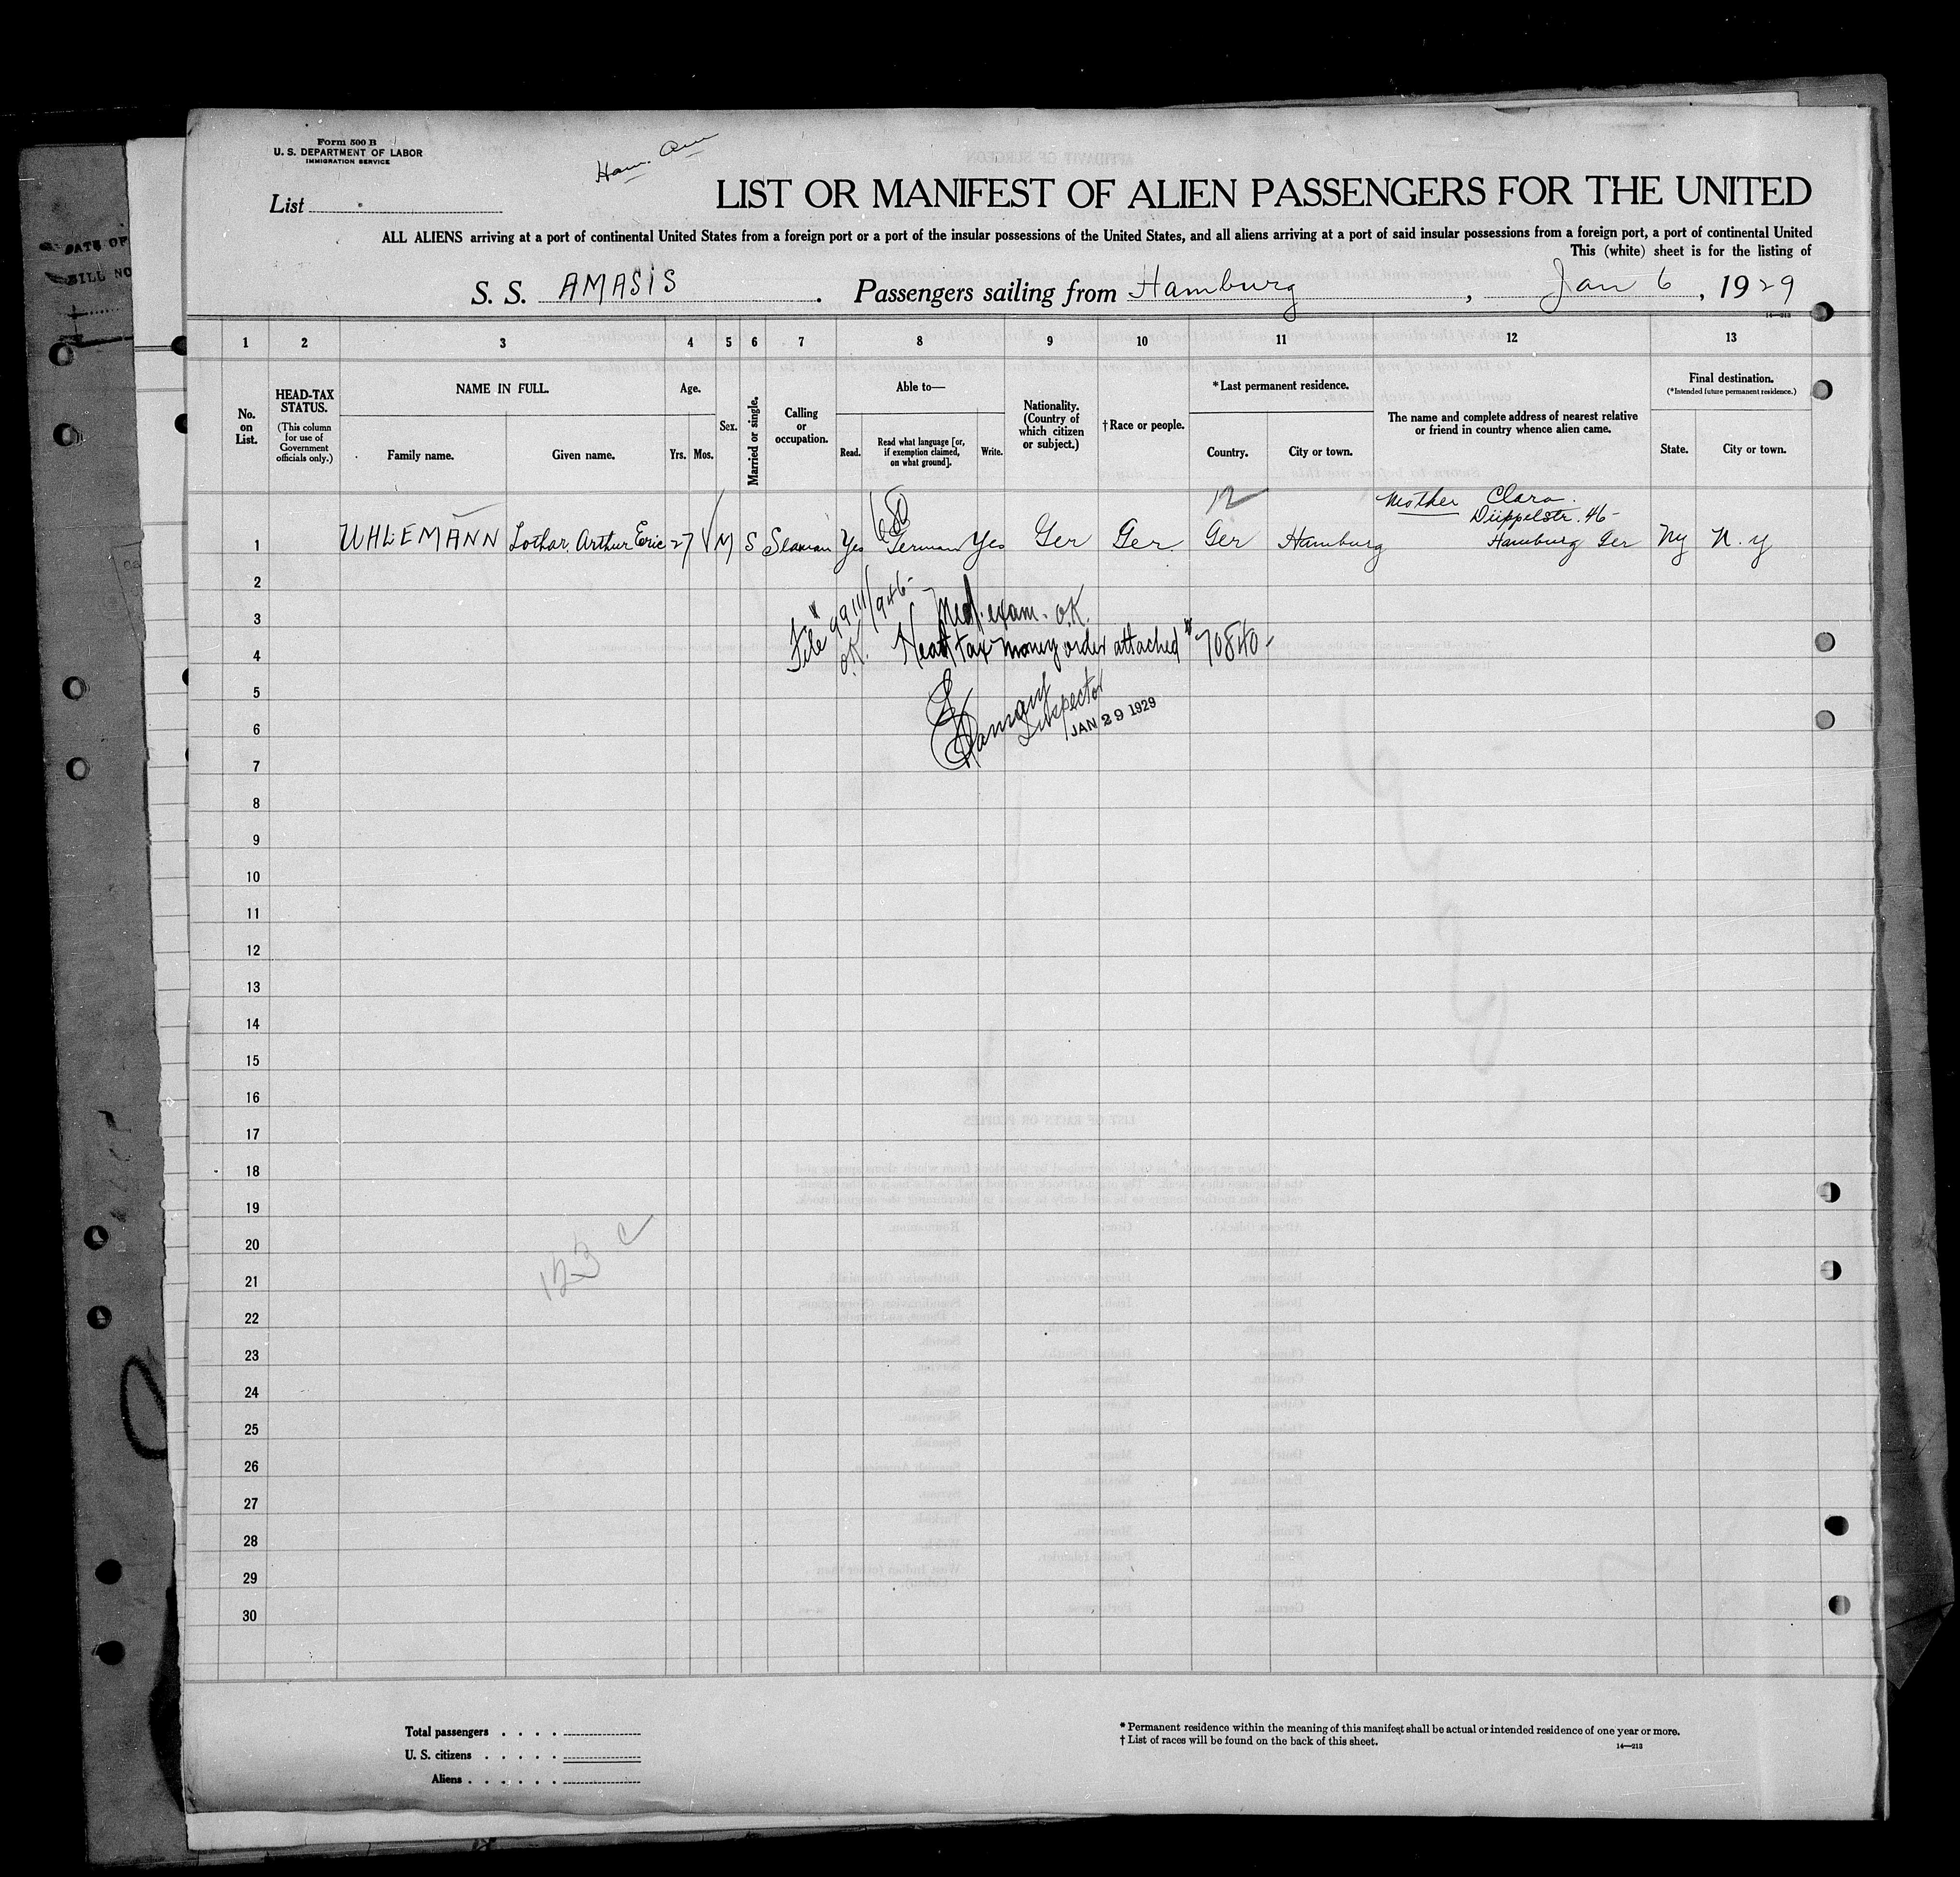 DATE OF
BILL NO
Form 500 B
U. S. DEPARTMENT OF LABOR
IMMIGRATION SERVICE
Ham. Am
List
LIST OR MANIFEST OF ALIEN PASSENGERS FOR THE UNITED
ALL ALIENS arriving at a port of continental United States from a foreign port or a port of the insular possessions of the United States, and all aliens arriving at a port of said insular possessions from a foreign port, a port of continental United
This (white) sheet is for the listing of
S. S. AMASIS . Passengers sailing from Hamburg , Jan 6 , 1929
14—213
1 2 3 4 5 6 7 8 9 10 11 12 13
No. on List.
HEAD-TAX STATUS.
(This column for use of Government officials only.)
NAME IN FULL.
Family name.
Given name.
Age.
Yrs. Mos.
Sex.
Married or single.
Calling or occupation.
Able to—
Read.
Read what language [or, if exemption claimed, on what ground].
Write.
Nationality. (Country of which citizen or subject.)
†Race or people.
*Last permanent residence.
Country.
City or town.
The name and complete address of nearest relative or friend in country whence alien came.
Final destination.
(*Intended future permanent residence.)
State.
City or town.
12
Mother Clara.
Düppelstr. 46-
1 UHLEMANN Lothar, Arthur Eric 27 M S Seaman Yes German Yes Ger Ger. Ger Hamburg Hamburg Ger Ny N. y
2
3
4
5
6
7
8
9
10
11
12
13
14
15
16
17
18
19
20
21
22
23
24
25
26
27
28
29
30
File 99111/946-
OK.
Med. exam. O.K.
Head tax money order attached #70840-
Inspector
JAN 29 1929
123 c
Total passengers . . . .
U. S. citizens . . . . .
Aliens . . . . . .
* Permanent residence within the meaning of this manifest shall be actual or intended residence of one year or more.
† List of races will be found on the back of this sheet.
14—213